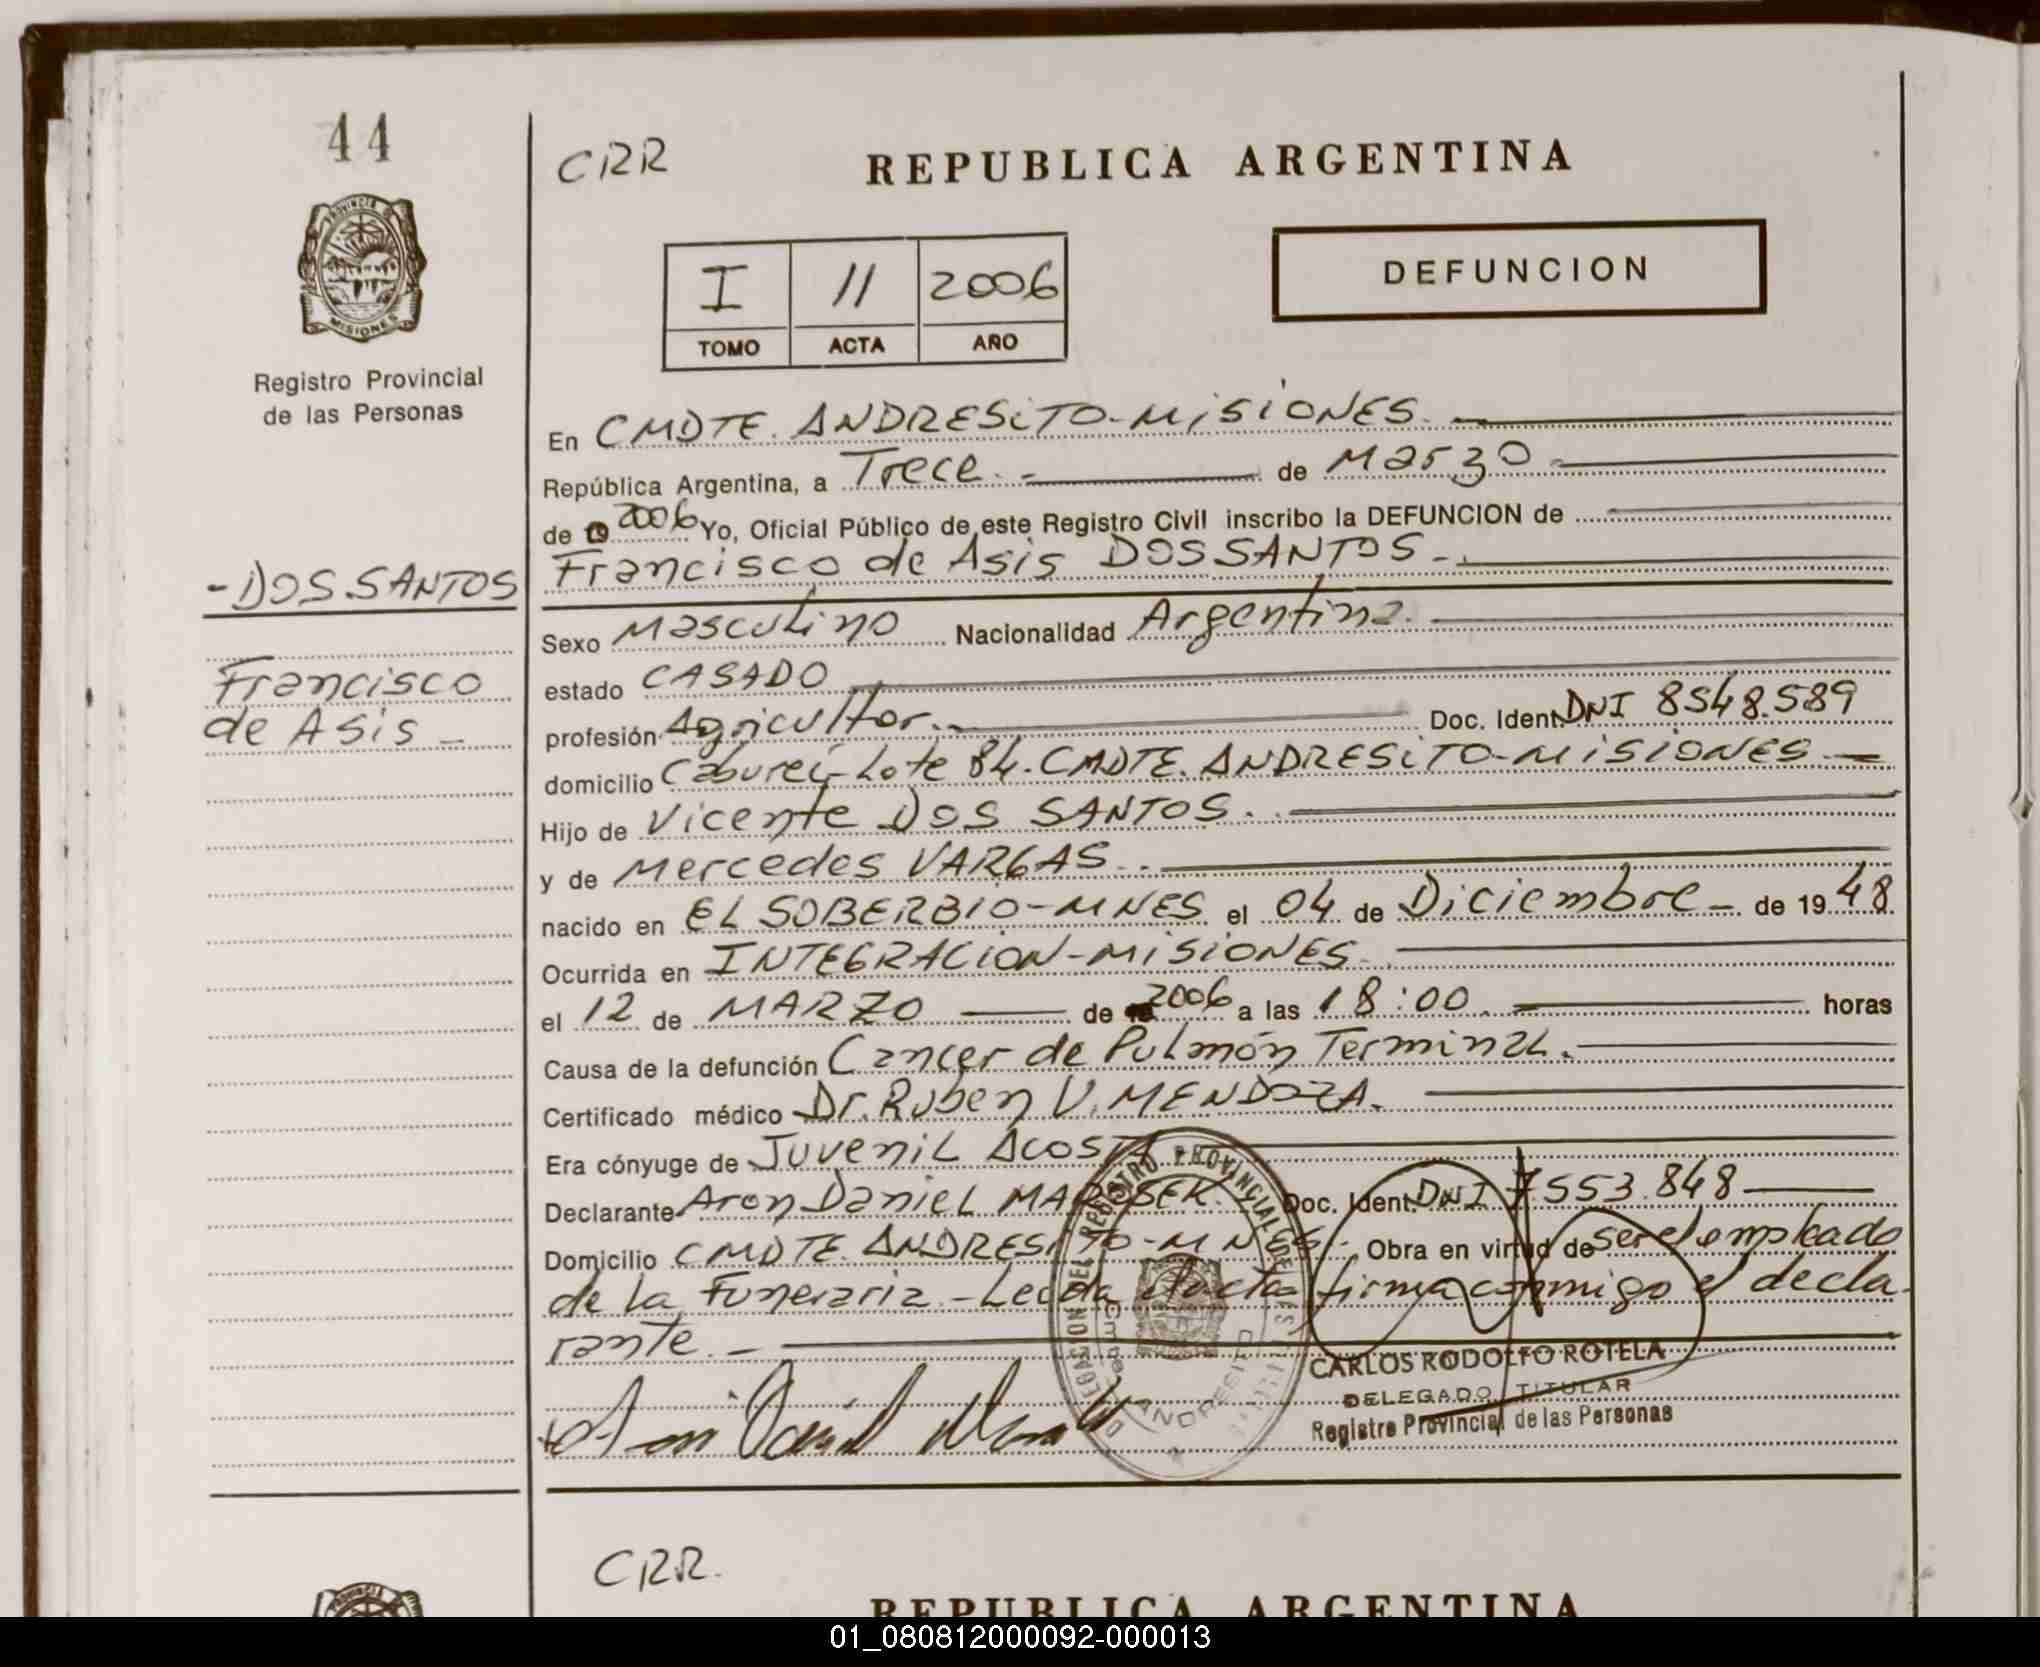 44
CRR
REPUBLICA ARGENTINA
PROVINCIA DE
MISIONES
Registro Provincial
de las Personas
I
11
2006
TOMO
ACTA
AÑO
DEFUNCION
En CMDTE. ANDRESITO-MISIONES.
República Argentina, a Trece. de Marzo
de 2006 Yo, Oficial Público de este Registro Civil inscribo la DEFUNCION de
Francisco de Asis DOS SANTOS
-DOS SANTOS
Francisco
de Asis
Sexo Masculino Nacionalidad Argentina
estado CASADO
profesión Agricultor. Doc. Ident. DNI 8548.589
domicilio Cabureí-Lote 84. CMDTE. ANDRESITO-MISIONES
Hijo de Vicente DOS SANTOS.
y de Mercedes VARGAS
nacido en EL SOBERBIO-MNES el 04 de Diciembre de 1948
Ocurrida en INTEGRACION-MISIONES
el 12 de MARZO de 2006 a las 18:00 horas
Causa de la defunción Cancer de Pulmón Terminal.
Certificado médico Dr. Ruben V. MENDOZA.
Era cónyuge de Juvenil Acosta
Declarante Aron Daniel Doc. Ident. DNI 7553.848
Domicilio CMDTE. ANDRESITO-MNES. Obra en virtud de ser el empleado
de la Funeraria.-Leída el acta firma conmigo el decla-
rante.
CARLOS RODOLFO ROTELA
DELEGADO TITULAR
Registro Provincial de las Personas
DELEGACION DEL REGISTRO PROVINCIAL DE LAS
ANDRESITO
CRR.
REPUBLICA ARGENTINA
01_080812000092-000013